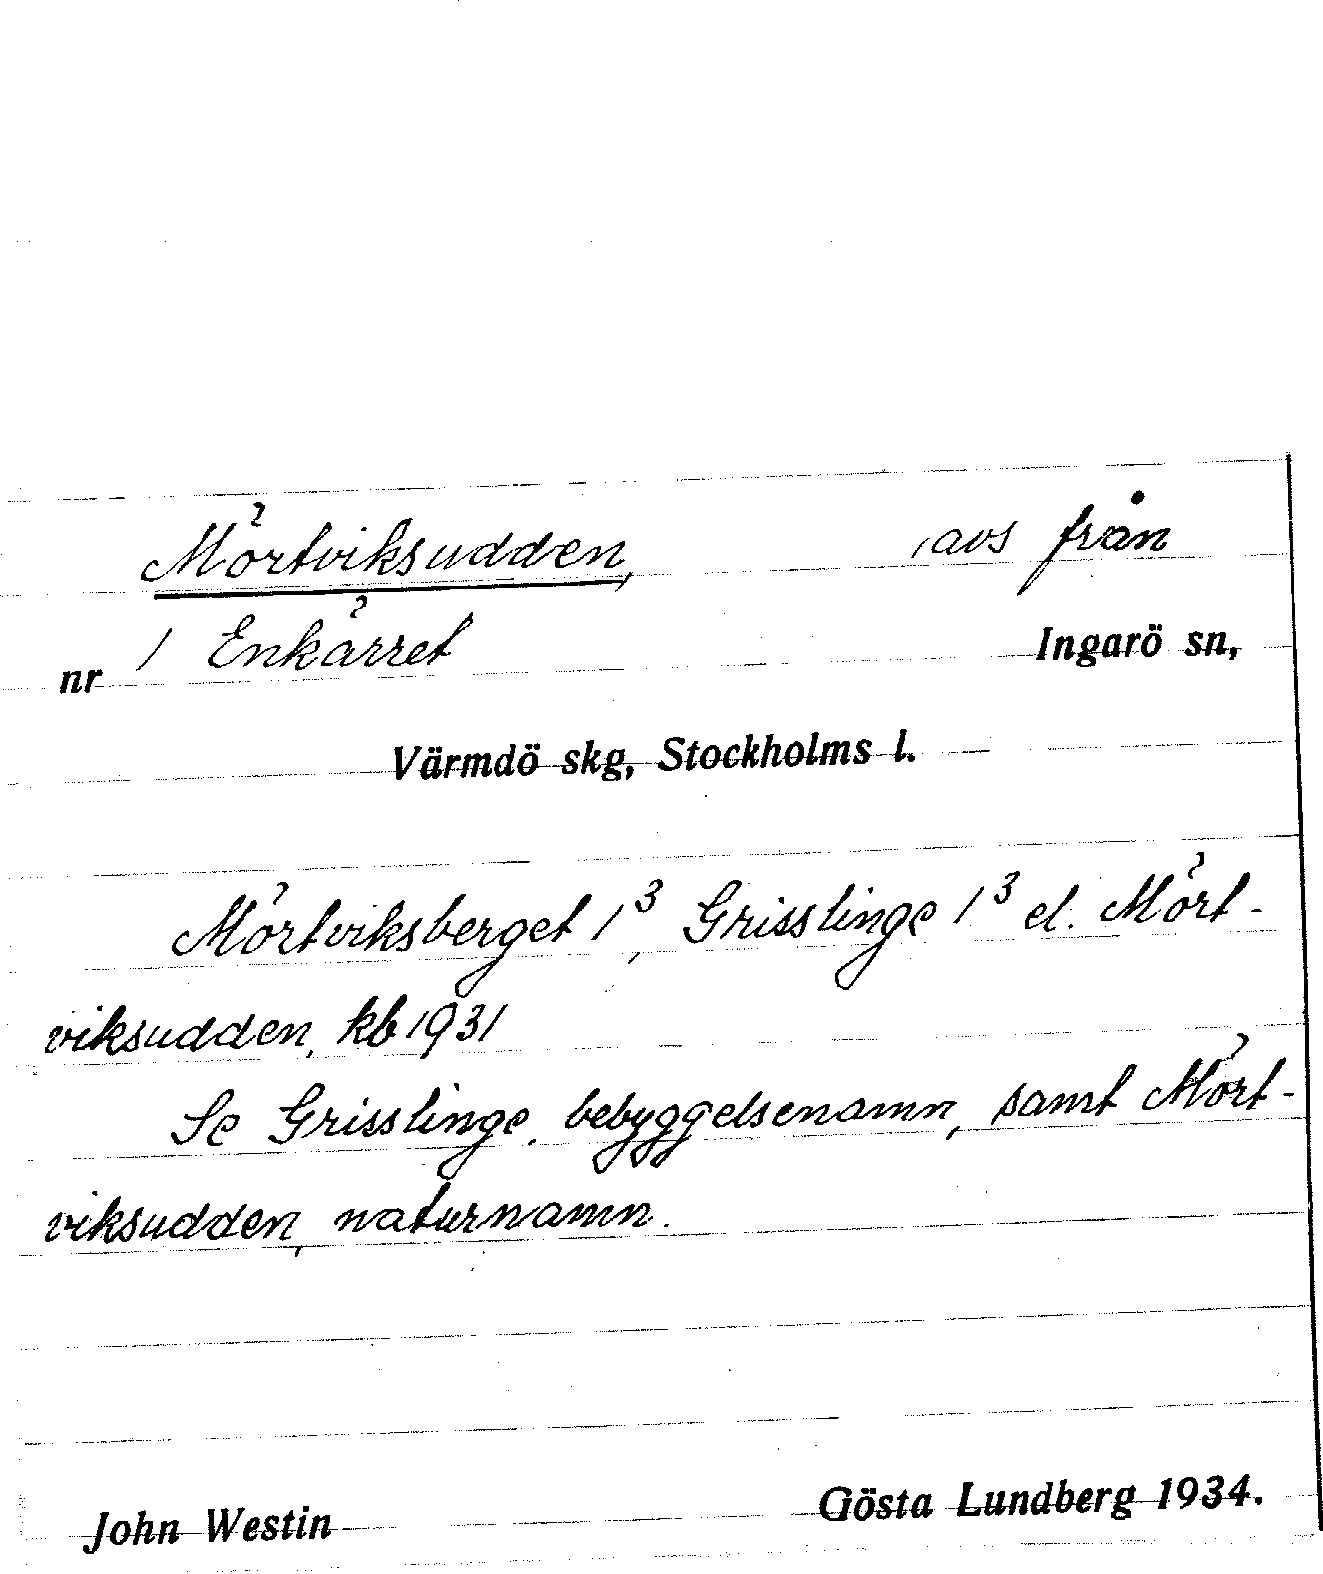 Mörtviksudden, , avs från
nr 1 Enkärret Ingarö sn,
Värmdö skg, Stockholms l.
Mörtviksberget 1³, Grisslinge 1³ el. Mört-
viksudden, kb 1931
Se Grisslinge, bebyggelsenamn, samt Mört-
viksudden, naturnamn.
John Westin Gösta Lundberg 1934.